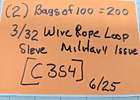 (2) Bags of 100 = 200
3/32 Wire Rope Loop
Sleve Military Issue
[C354]
6/25